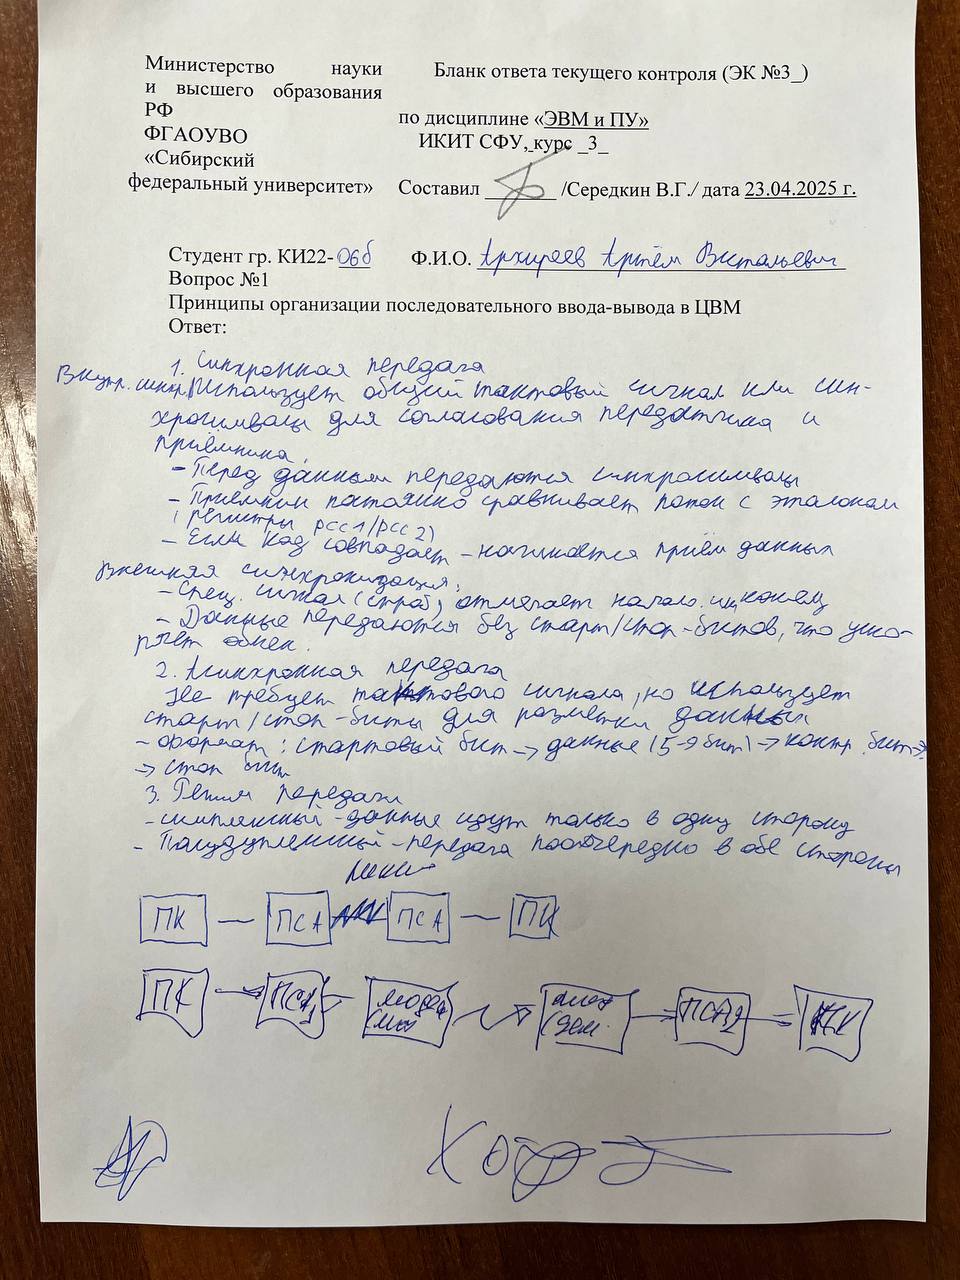 Министерство науки
и высшего образования
РФ
ФГАОУВО
«Сибирский
федеральный университет»
Бланк ответа текущего контроля (ЭК №3_)
по дисциплине «ЭВМ и ПУ»
ИКИТ СФУ, курс _3_
Составил /Середкин В.Г./ дата 23.04.2025 г.
Студент гр. КИ22- 06б Ф.И.О. Архиреев Артём Витальевич
Вопрос №1
Принципы организации последовательного ввода-вывода в ЦВМ
Ответ:
1. Синхронная передача
Внутр. синхр. Использует общий тактовый сигнал или син-
хросимволы для согласования передатчика и
приёмника.
- Перед данными передаются синхросимволы
- Приемник постоянно сравнивает поток с эталоном
(регистры РСС1/РСС2)
- Если код совпадает - начинается приём данных
Внешняя синхронизация:
- Спец. сигнал (строб) отмечает начало и конец
- Данные передаются без старт/стоп-битов, что уско-
ряет обмен.
2. Асинхронная передача
Не требует тактового сигнала, но использует
старт/стоп-биты для разметки данных
- формат: стартовый бит -> данные (5-9 бит) -> контр. бит ->
-> стоп бит
3. Режим передачи
- симплексный - данные идут только в одну сторону
- Полудуплексный - передача поочередно в обе стороны
ПК — ПСА ПСА — ПК
ПК ПСА1 ПСА2 ПК
Хор